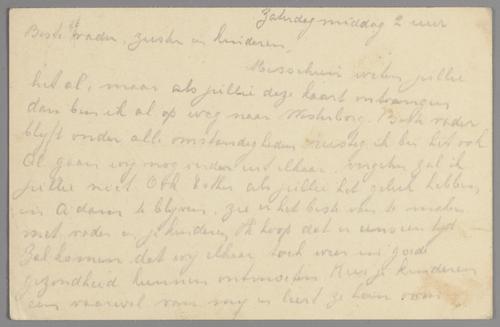 Zaterdag middag 2 uur
Beste vader, zuster en kinderen,
Misschien weten jullie
het al, maar als jullie deze kaart ontvangen
dan ben ik al op weg naar Westerborg. Beste vader
blyft onder alle omstandigheden rustig, ik ben het ook
Al gaan wy nog verder uit elkaar, vergeten zal ik
jullie niet. Ook Esther als jullie het geluk hebben,
in A'dam te blyven, zie er het beste van te maken
met vader en je kinderen, Ik hoop dat er eens een tyd
Zal komen dat wy elkaar toch weer in goede
gezondheid kunnen ontmoeten. Kus je kinderen
een vaarwel van my en leert ze hoe